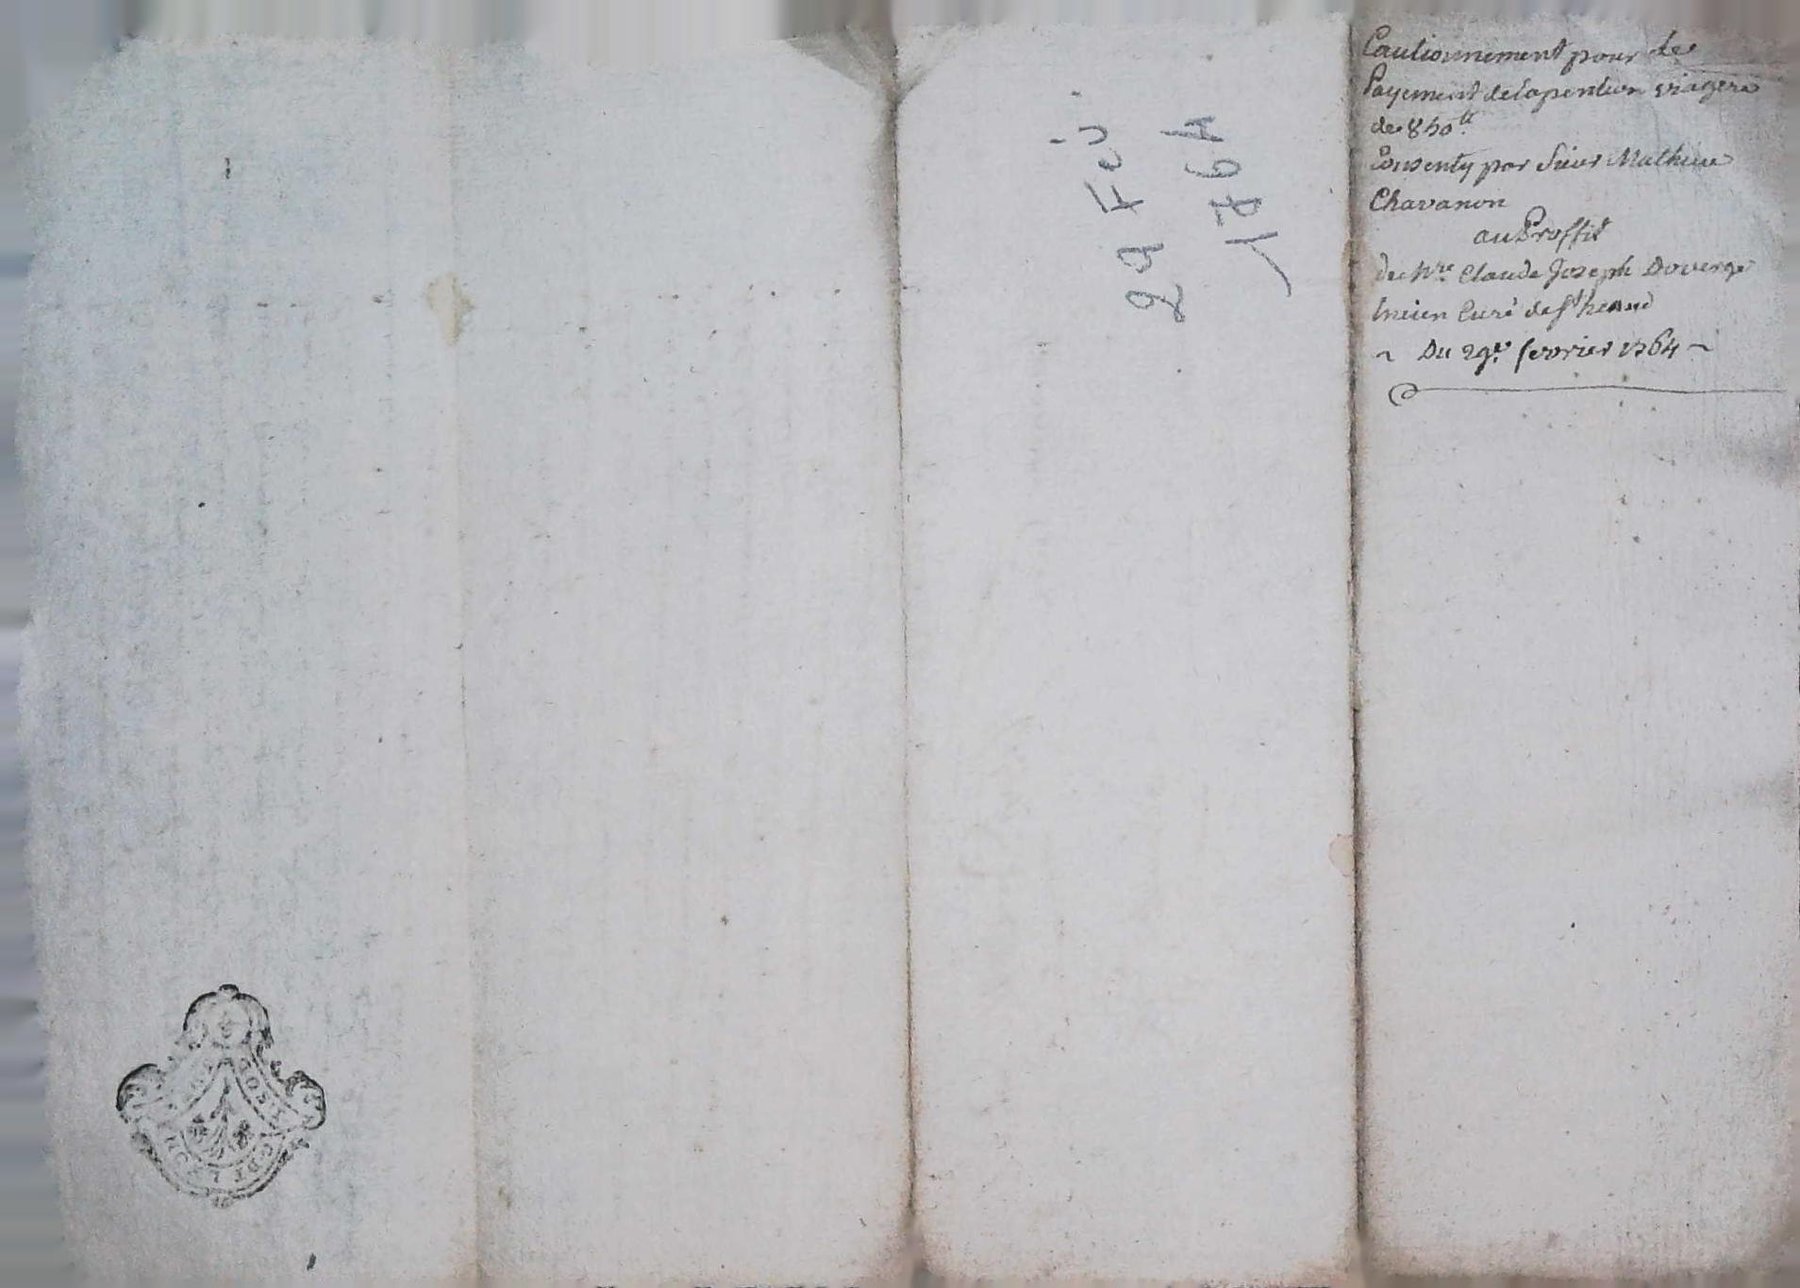 Cautionnement pour le
Payement de la pention viagere
de 850ᵗᵗ
Consenty par Sieur Mathieu
Chavanon
au Proffit
de Mre Claude Joseph Doverge
Ancien Curé de St heand
~ Du 29e fevrier 1764 ~
29 Fev
1764